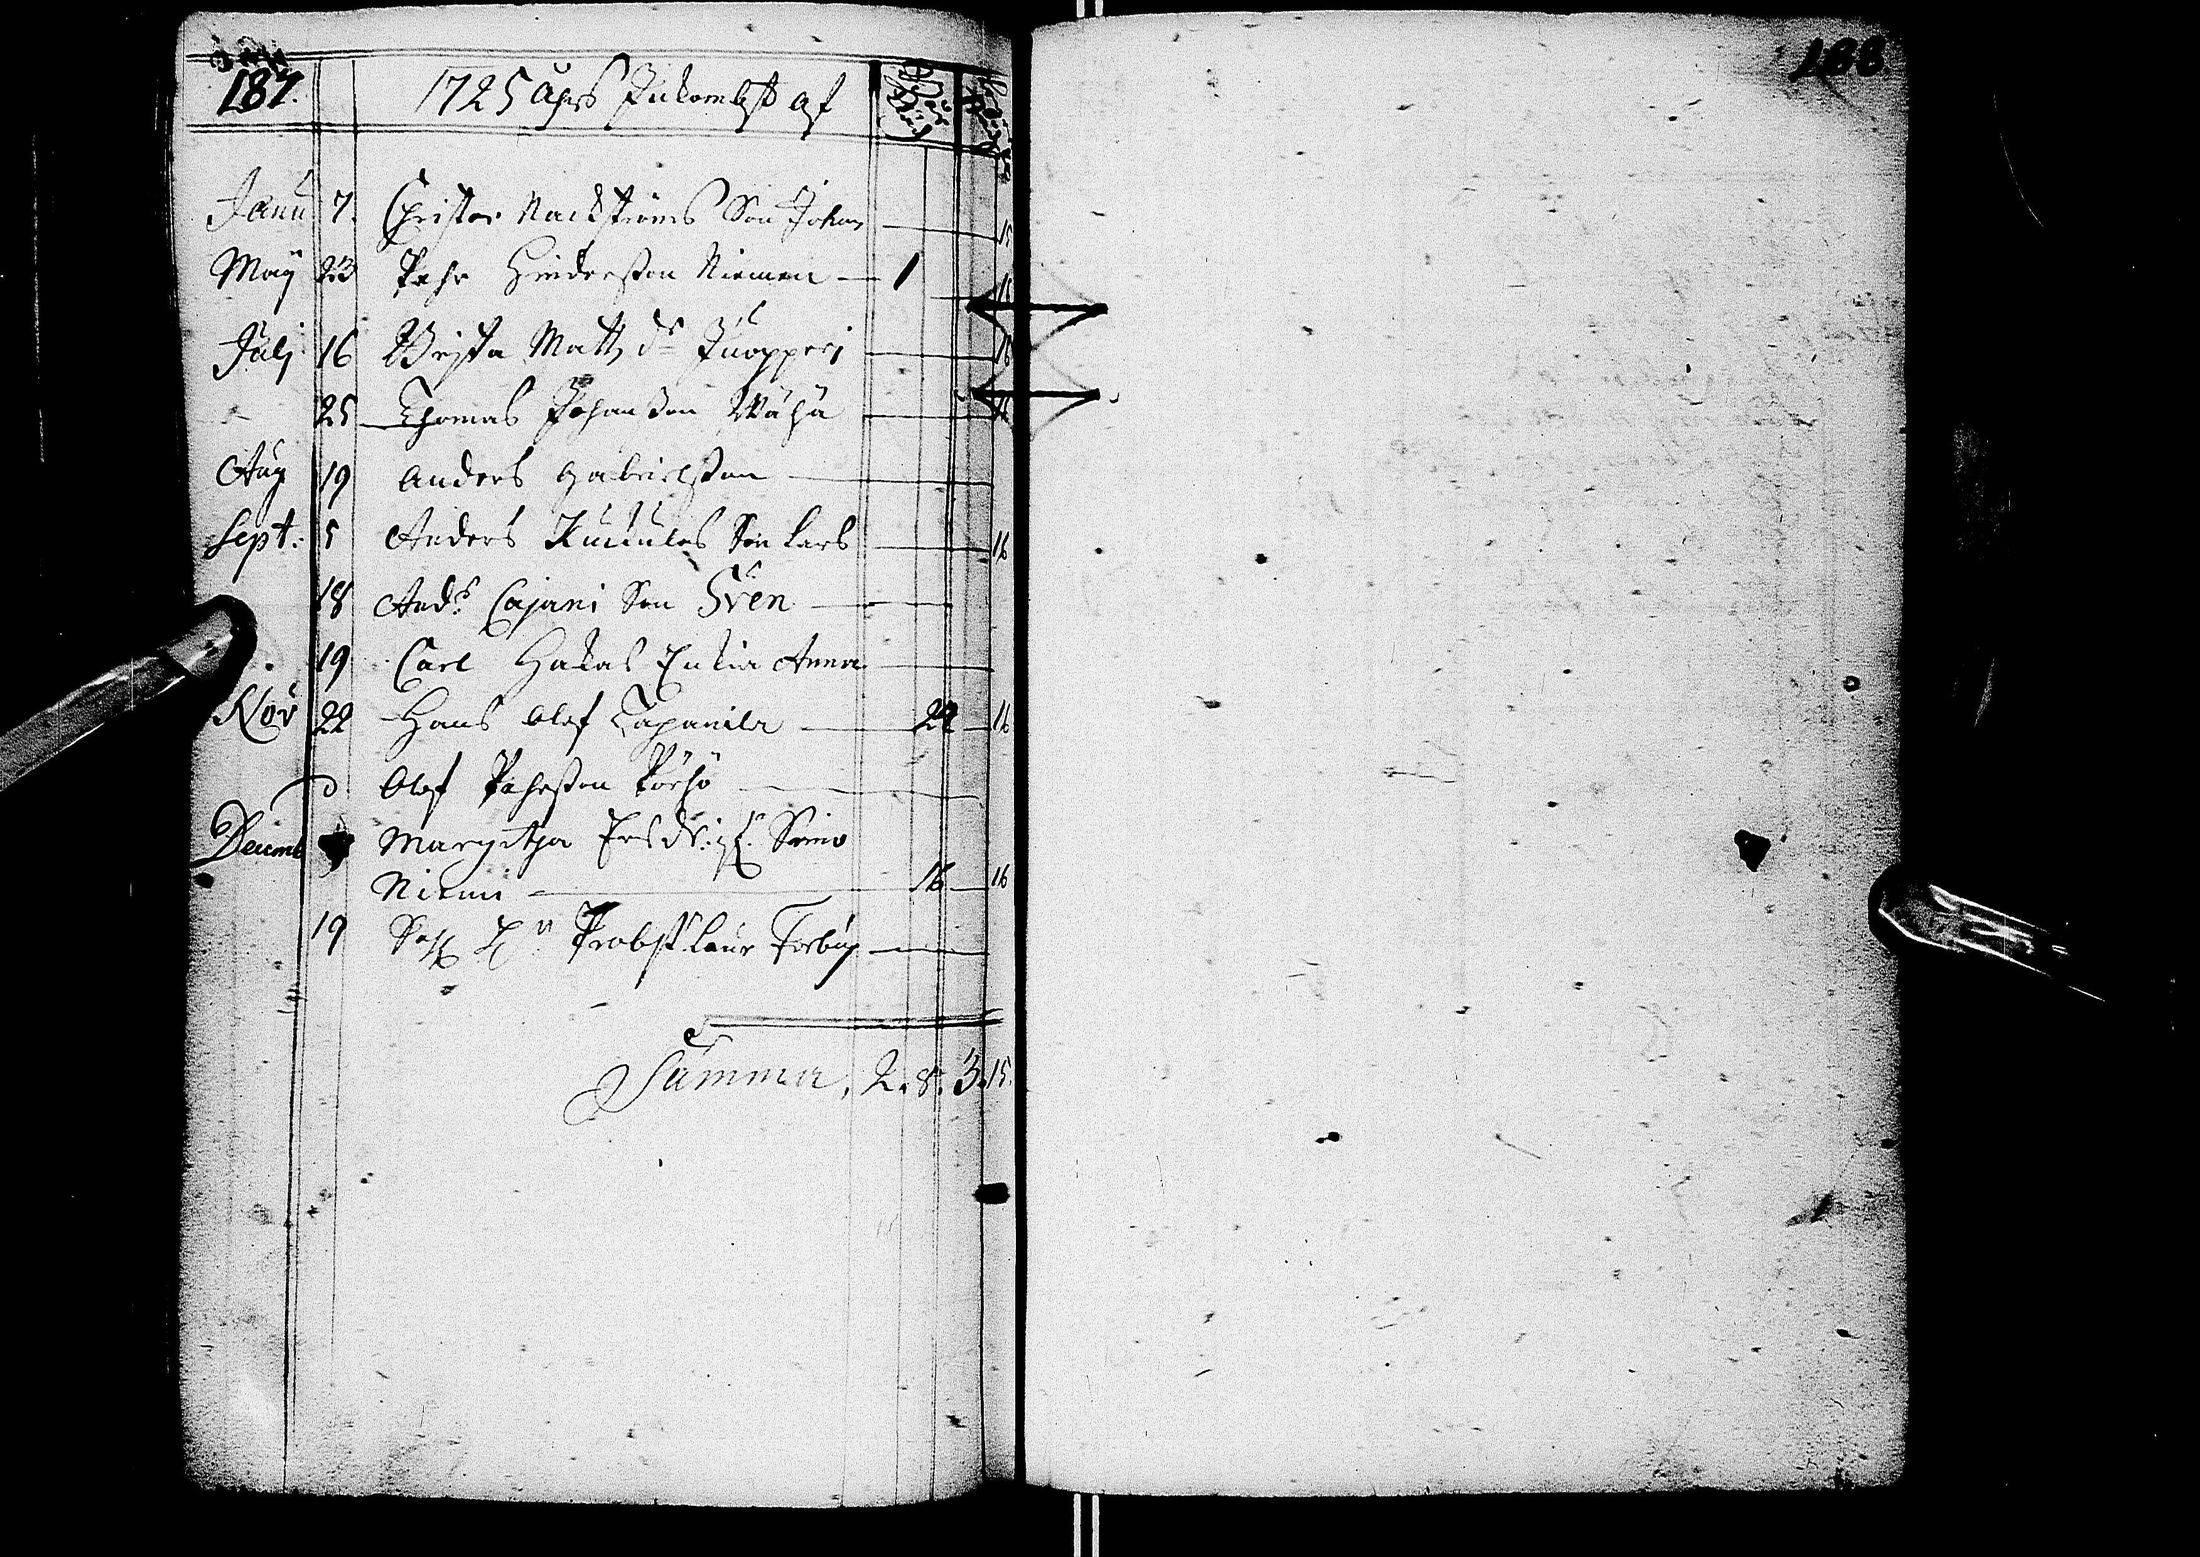 187.
1725 Åhrs Inkombst af
Janu 7. Christer Nackströms Son Johan 15
Maij 23 Pehr Hindersson Niemen 1 16
Julj 16 Brijta Matts dr Juopperi 16
25 Thomas Johansson Wähä 16
Aug 19 Anders Gabrielsson
Sept: 5 Anders Kukulas Son Lars 16
18 Anders Cajani Son Sven
19 Carl Hakas Enkia Anna
Nov 22 Hans Olof Tapanila 24 16
d Olof Pehrsson Pörhö
Decemb Margetha Ers dr:
Niemi 16 16
19 Sal H n Probst Laur Forbus
Summa, 2. 8. 3. 15.
188.